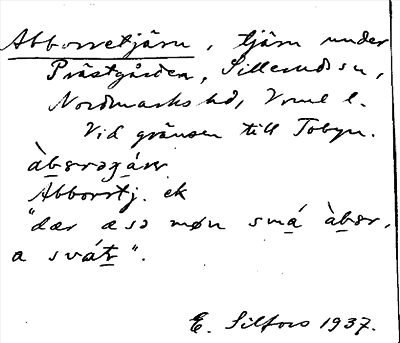 Abborretjärn, tjärn under
Prästgården, Silleruds sn,
Nordmarks hd, Vrml l.
Vid gränsen till Tobyn.
àbərəgáɳ
Abborrtj. ek
"dær æ sə møn smá àbər,
a svát".
E. Silfors 1937.